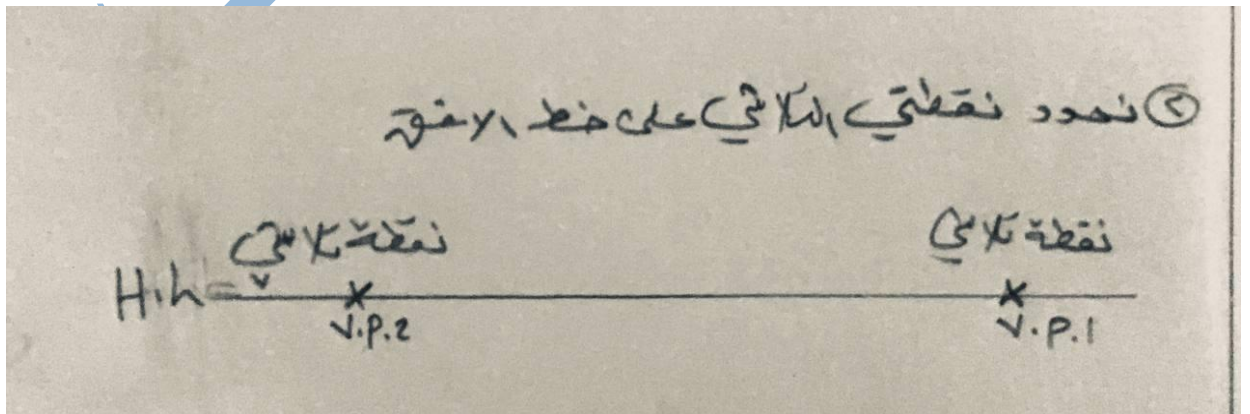 ② نحدد نقطتي التلاشي على خط الافق
نقطة تلاشي
نقطة تلاشي
H.h =
V.P.1
V.P.2